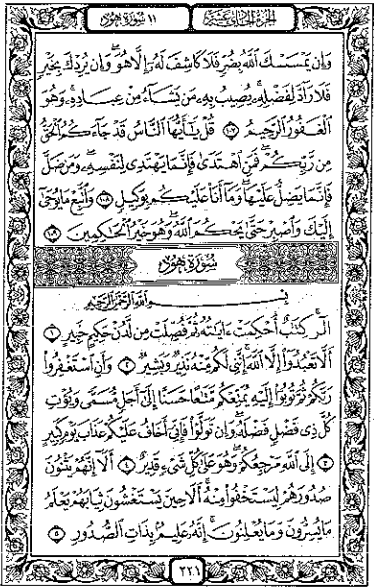 الجزء الحادي عشر ١١ سورة هود
وَإِن يَمْسَسْكَ اللَّهُ بِضُرٍّ فَلَا كَاشِفَ لَهُ إِلَّا هُوَ وَإِن يُرِدْكَ بِخَيْرٍ
فَلَا رَادَّ لِفَضْلِهِ يُصِيبُ بِهِ مَن يَشَاءُ مِنْ عِبَادِهِ وَهُوَ
الْغَفُورُ الرَّحِيمُ ١٠٧ قُلْ يَا أَيُّهَا النَّاسُ قَدْ جَاءَكُمُ الْحَقُّ
مِن رَّبِّكُمْ فَمَنِ اهْتَدَىٰ فَإِنَّمَا يَهْتَدِي لِنَفْسِهِ وَمَن ضَلَّ
فَإِنَّمَا يَضِلُّ عَلَيْهَا وَمَا أَنَا عَلَيْكُم بِوَكِيلٍ ١٠٨ وَاتَّبِعْ مَا يُوحَىٰ
إِلَيْكَ وَاصْبِرْ حَتَّىٰ يَحْكُمَ اللَّهُ وَهُوَ خَيْرُ الْحَاكِمِينَ ١٠٩
سورة هود
بِسْمِ اللَّهِ الرَّحْمَٰنِ الرَّحِيمِ
الر كِتَابٌ أُحْكِمَتْ آيَاتُهُ ثُمَّ فُصِّلَتْ مِن لَّدُنْ حَكِيمٍ خَبِيرٍ ١
أَلَّا تَعْبُدُوا إِلَّا اللَّهَ إِنَّنِي لَكُم مِّنْهُ نَذِيرٌ وَبَشِيرٌ ٢ وَأَنِ اسْتَغْفِرُوا
رَبَّكُمْ ثُمَّ تُوبُوا إِلَيْهِ يُمَتِّعْكُم مَّتَاعًا حَسَنًا إِلَىٰ أَجَلٍ مُّسَمًّى وَيُؤْتِ
كُلَّ ذِي فَضْلٍ فَضْلَهُ وَإِن تَوَلَّوْا فَإِنِّي أَخَافُ عَلَيْكُمْ عَذَابَ يَوْمٍ كَبِيرٍ
٣ إِلَى اللَّهِ مَرْجِعُكُمْ وَهُوَ عَلَىٰ كُلِّ شَيْءٍ قَدِيرٌ ٤ أَلَا إِنَّهُمْ يَثْنُونَ
صُدُورَهُمْ لِيَسْتَخْفُوا مِنْهُ أَلَا حِينَ يَسْتَغْشُونَ ثِيَابَهُمْ يَعْلَمُ
مَا يُسِرُّونَ وَمَا يُعْلِنُونَ إِنَّهُ عَلِيمٌ بِذَاتِ الصُّدُورِ ٥
٢٢١